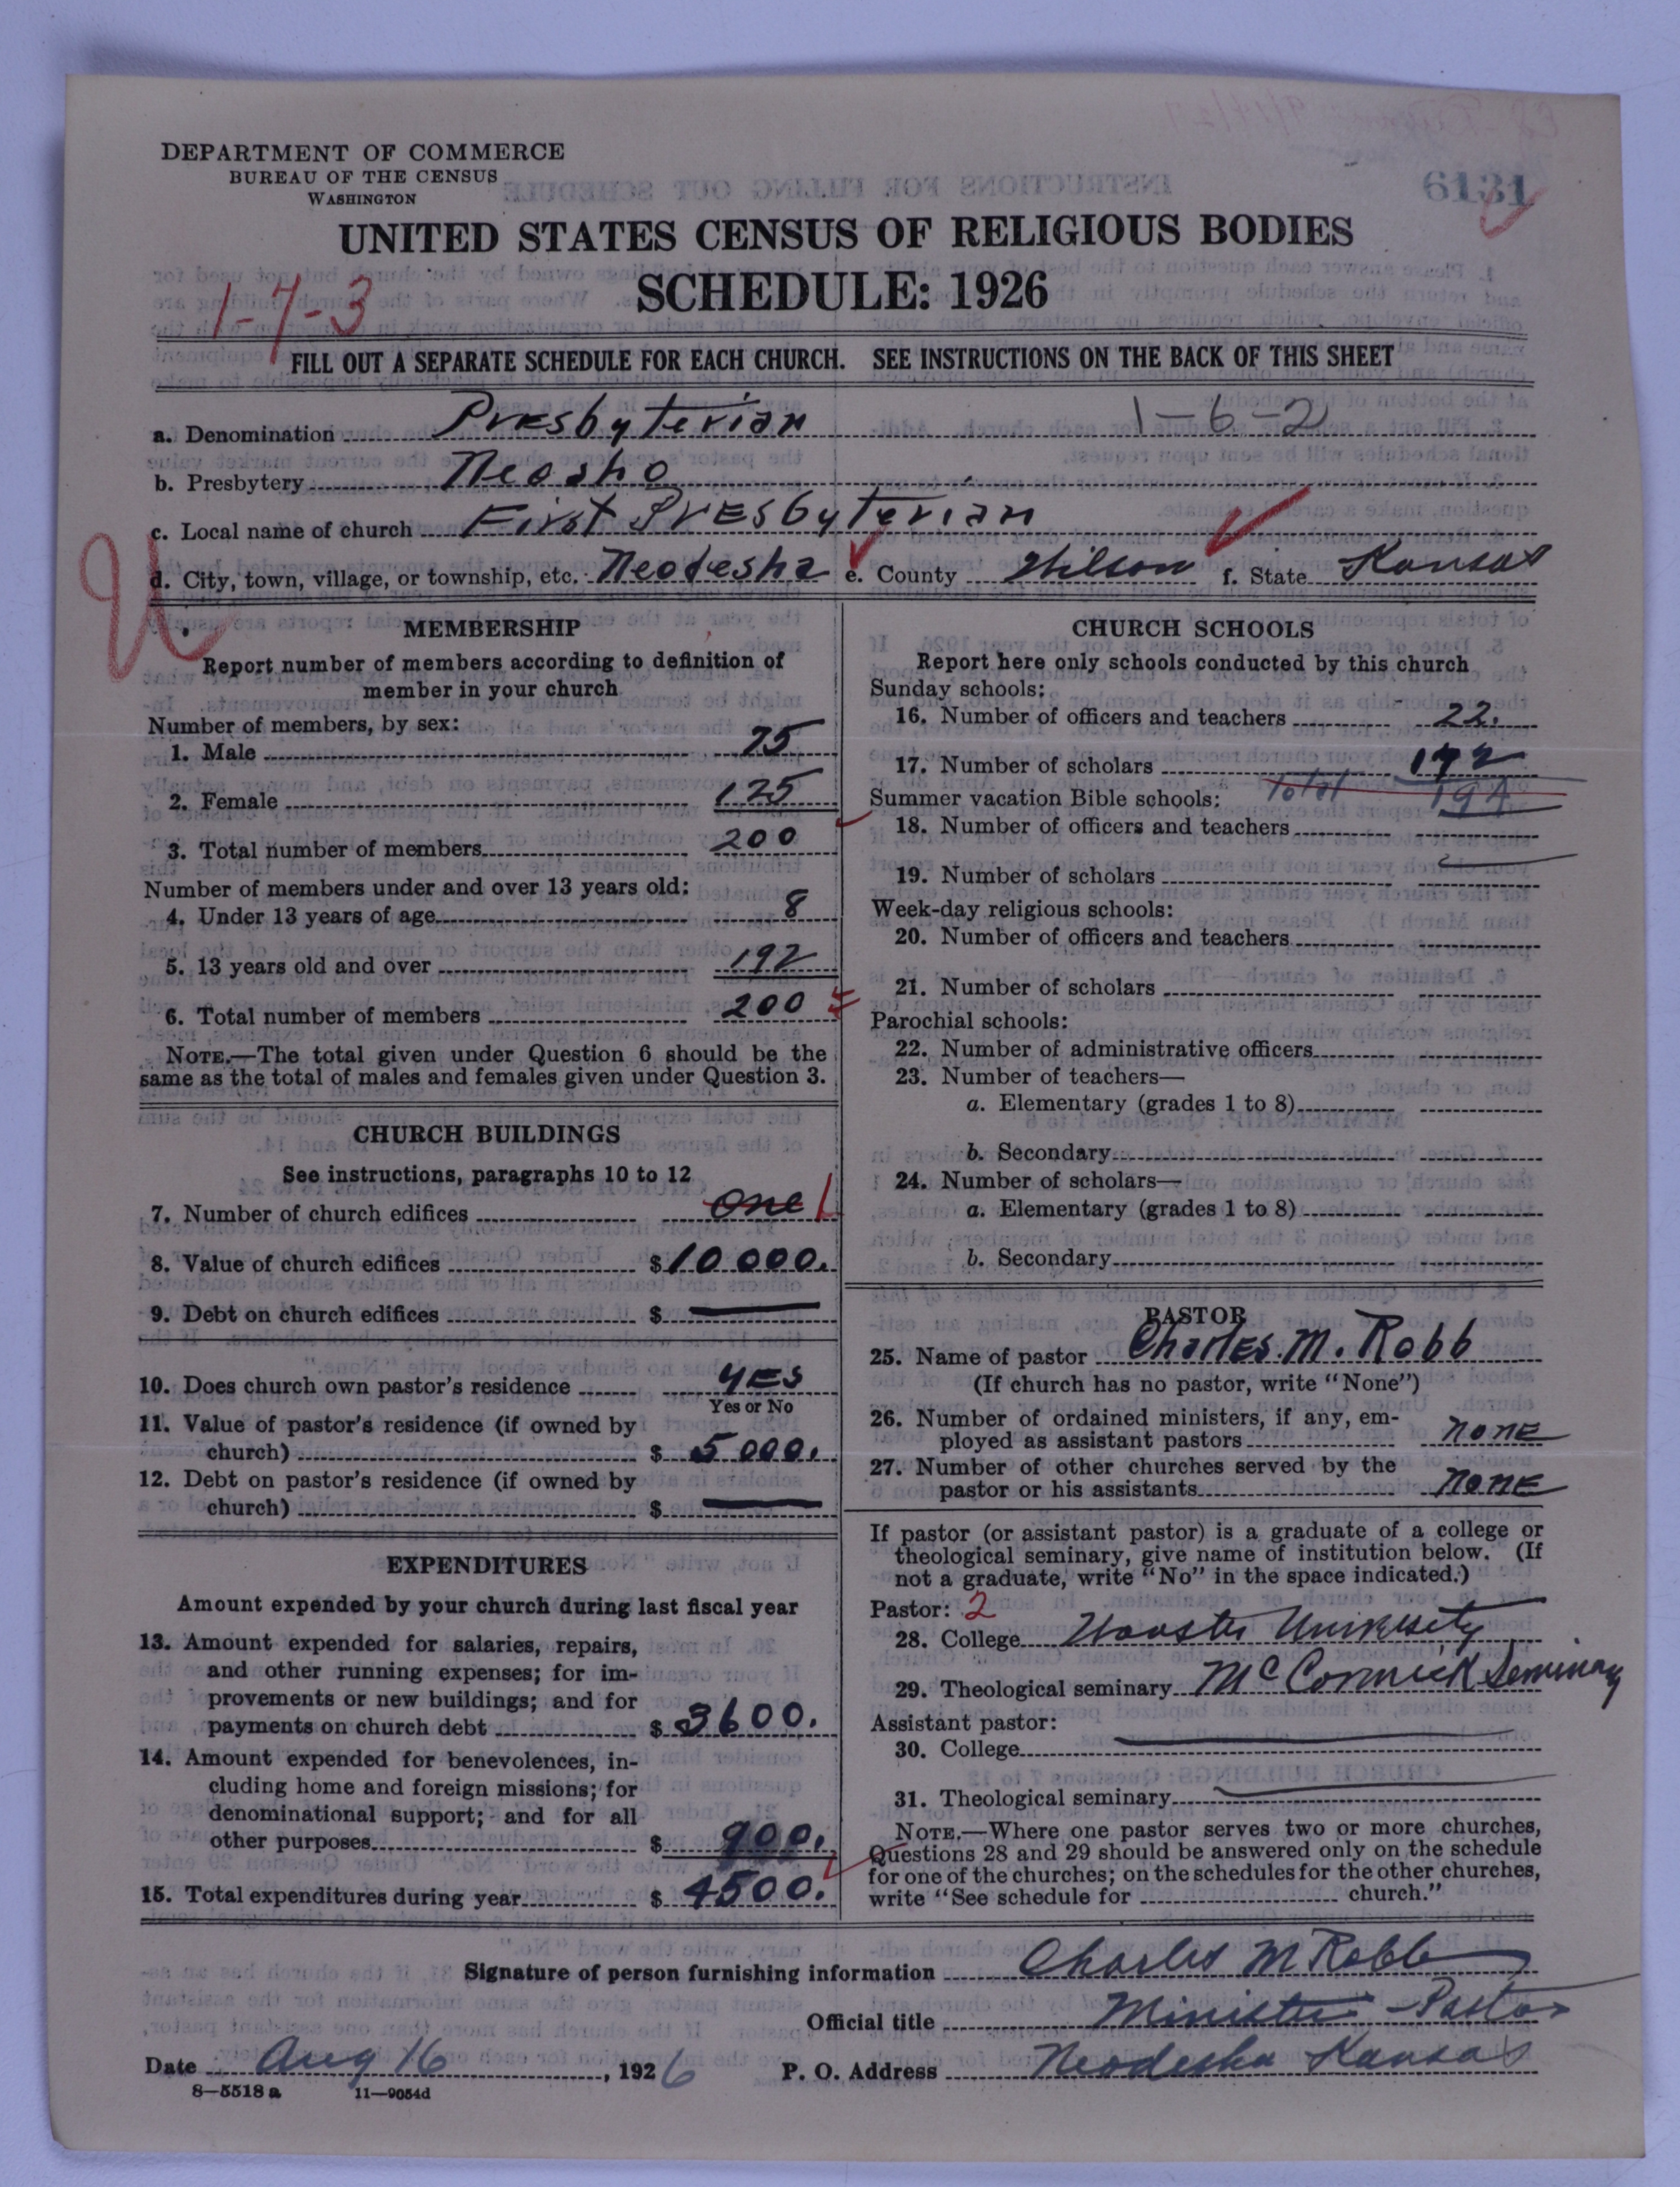 DEPARTMENT OF COMMERCE
BUREAU OF THE CENSUS
WASHINGTON
6131
UNITED STATES CENSUS OF RELIGIOUS BODIES
SCHEDULE: 1926
1-7-3
FILL OUT A SEPARATE SCHEDULE FOR EACH CHURCH. SEE INSTRUCTIONS ON THE BACK OF THIS SHEET
a. Denomination Presbyterian 1-6-2
b. Presbytery Neosho
c. Local name of church First Presbyterian
d. City, town, village, or township, etc. Neodesha e. County Wilson f. State Kansas
MEMBERSHIP
Report number of members according to definition of
member in your church
Number of members, by sex:
1. Male 75
2. Female 125
3. Total number of members 200
Number of members under and over 13 years old:
4. Under 13 years of age 8
5. 13 years old and over 192
6. Total number of members 200
NOTE.—The total given under Question 6 should be the
same as the total of males and females given under Question 3.
CHURCH BUILDINGS
See instructions, paragraphs 10 to 12
7. Number of church edifices one 1
8. Value of church edifices $ 10 000.
9. Debt on church edifices $ —
10. Does church own pastor's residence YES
Yes or No
11. Value of pastor's residence (if owned by
church) $ 5 000.
12. Debt on pastor's residence (if owned by
church) $ —
EXPENDITURES
Amount expended by your church during last fiscal year
13. Amount expended for salaries, repairs,
and other running expenses; for im-
provements or new buildings; and for
payments on church debt $ 3600.
14. Amount expended for benevolences, in-
cluding home and foreign missions; for
denominational support; and for all
other purposes $ 900.
15. Total expenditures during year $ 4500.
CHURCH SCHOOLS
Report here only schools conducted by this church
Sunday schools:
16. Number of officers and teachers 22.
17. Number of scholars 172
Summer vacation Bible schools: total 194
18. Number of officers and teachers
19. Number of scholars
Week-day religious schools:
20. Number of officers and teachers
21. Number of scholars
Parochial schools:
22. Number of administrative officers
23. Number of teachers—
a. Elementary (grades 1 to 8)
b. Secondary
24. Number of scholars—
a. Elementary (grades 1 to 8)
b. Secondary
PASTOR
25. Name of pastor Charles. M. Robb
(If church has no pastor, write "None")
26. Number of ordained ministers, if any, em-
ployed as assistant pastors none
27. Number of other churches served by the
pastor or his assistants none
If pastor (or assistant pastor) is a graduate of a college or
theological seminary, give name of institution below. (If
not a graduate, write "No" in the space indicated.)
Pastor: 2
28. College Wooster University
29. Theological seminary McCormick Seminary
Assistant pastor:
30. College —
31. Theological seminary —
NOTE.—Where one pastor serves two or more churches,
Questions 28 and 29 should be answered only on the schedule
for one of the churches; on the schedules for the other churches,
write "See schedule for church."
Signature of person furnishing information Charles M Robb
Official title Minister - Pastor
Date Aug 16, 1926 P. O. Address Neodesha Kansas
8—5518 a 11—9054d